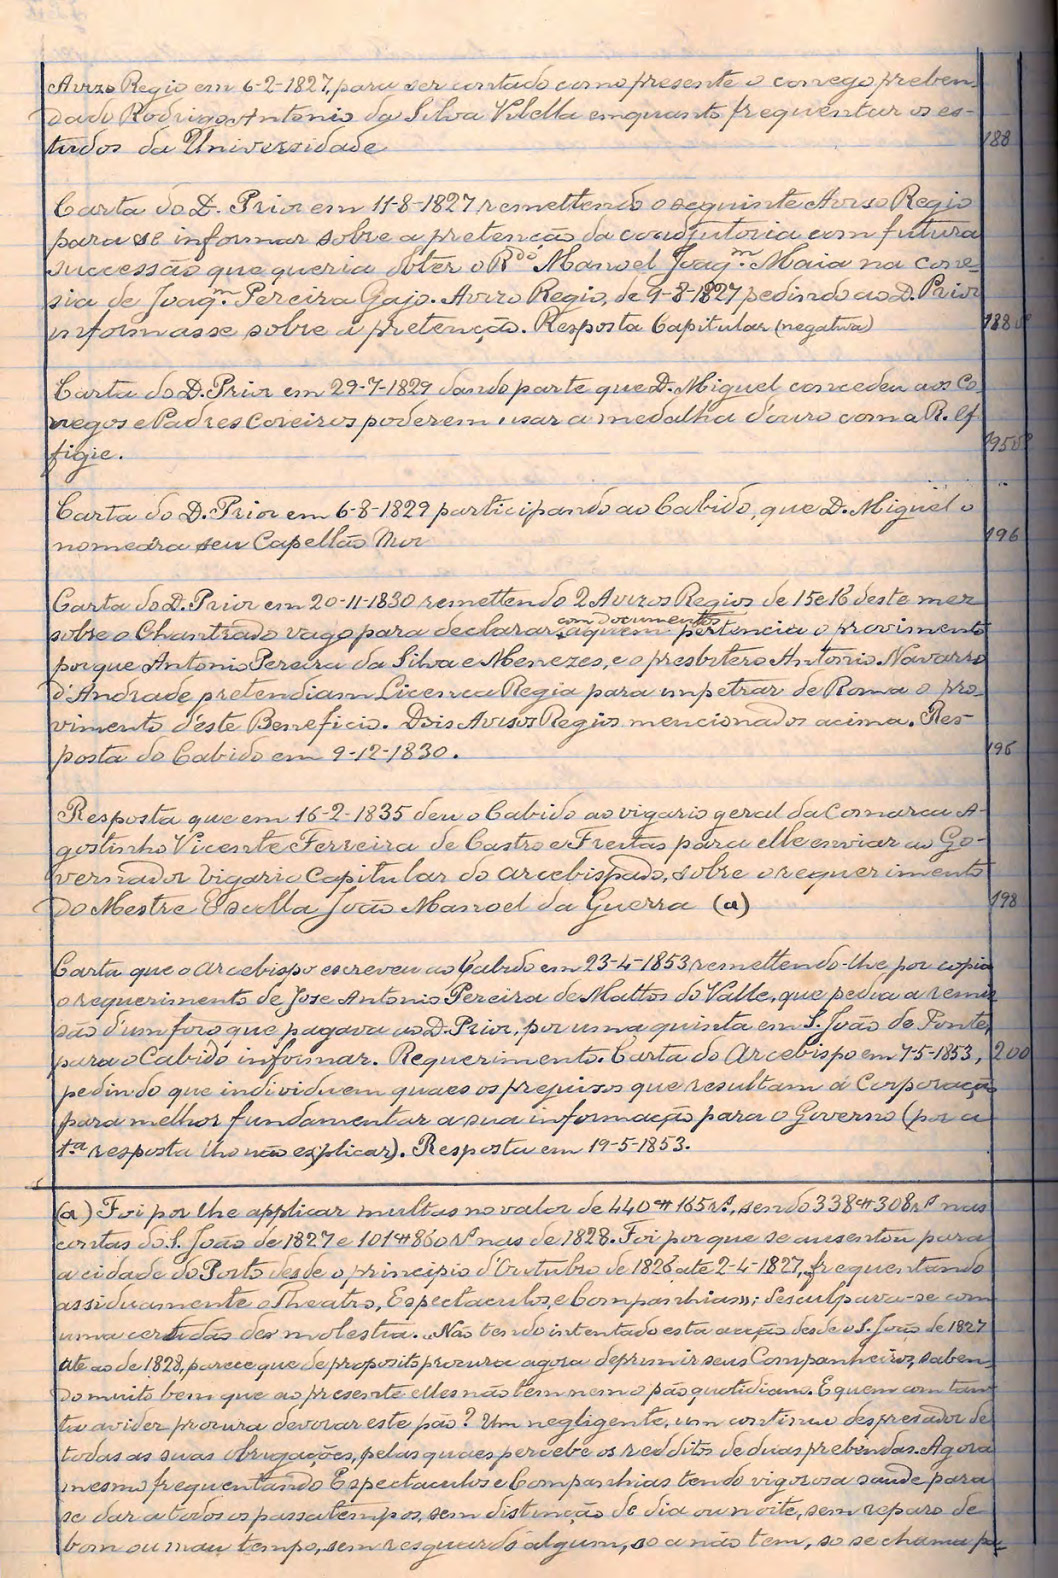 Avizo Regio em 6-2-1827, para ser contado como presente o conego preben-
dado Rodrigo Antonio da Silva Vilella emquanto frequentar os es-
tudos da Universidade 188
Carta do D. Prior em 11-8-1827, remettendo o seguinte Aviso Regio
para se informar sobre a pretenção da coadjutoria com futura
successão que queria obter o Rdo Manoel Joaqm. Maia na cone-
sia de Joaqm. Pereira Gajo. Avizo Regio, de 9-8-1827 pedindo ao D. Prior
informasse sobre a pretenção. Resposta Capitular (negativa) 188 vº
Carta do D. Prior em 29-7-1829 dando parte que D. Miguel concedeu aos Co
negos e Padres Coreiros poderem usar a medalha d'ouro com a R. ef
figie. 195 vº
Carta do D. Prior em 6-8-1829 participando ao Cabido, que D. Miguel o
nomeára seu Capellão Mor 196
Carta do D. Prior em 20-11-1830 remettendo 2 Avizos Regios de 15 e 16 deste mez
sobre o Chantrado vago para declarar, com documentos, a quem pertencia o provimento
porque Antonio Pereira da Silva e Menezes, e o presbitero Antonio Navarro
d'Andrade pretendiam Licença Regia para impetrar de Roma o pro-
vimento d'este Beneficio. Dois Avisos Regios mencionados acima. Res-
posta do Cabido em 9-12-1830. 196
Resposta que em 16-2-1835 deu o Cabido ao vigario geral da Comarca A-
gostinho Vicente Ferreira de Castro e Freitas para elle enviar ao Go-
vernador Vigario Capitular do arcebispado, sobre o requerimento
do Mestre Escolla João Manoel da Guerra (a) 198
Carta que o arcebispo escreveu ao Cabido em 23-4-1853, remettendo-lhe por copia
o requerimento de Jose Antonio Pereira de Mattos do Valle, que pedia a remis
são d'um foro que pagava ao D. Prior, por uma quinta em S. João de Ponte,
para o Cabido informar. Requerimento. Carta do Arcebispo em 7-5-1853, 200
pedindo que individuem quaes os prejuisos que resultam á Corporação
para melhor fundamentar a sua informação para o Governo (por a
1.ª resposta lho não explicar). Resposta em 19-5-1853.
(a) Foi por lhe applicar multas no valor de 440#165 rs., sendo 338#308 rs nas
contas do S. João de 1827 e 101#860 rs nas de 1828. Foi por que se ausentou para
a cidade do Porto desde o principio d'Outubro de 1826 até 2-4-1827, "frequentando
assiduamente o Theatro, Espectaculos, e Companhias"; desculpava-se com
uma certidão de molestia. "Não tendo intentado esta acção desde o S. João de 1827
até ao de 1828, parece que de proposito procura agora deprimir seus Companheiros, saben-
do muito bem que ao presente elles não têm nem o pão quotidiano. E quem com tan
ta avidez procura devorar este pão? Um negligente, um continuo despresador de
todas as suas obrigações, pelas quaes percebe os redditos de duas prebendas. Agora
mesmo frequentando Espectaculos e Companhias tendo vigorosa saude para
se dar a todos os passatempos, sem distincção de dia ou noite, sem reparo de
bom ou mau tempo, sem resguardo algum, só a não tem, só se chama pa-